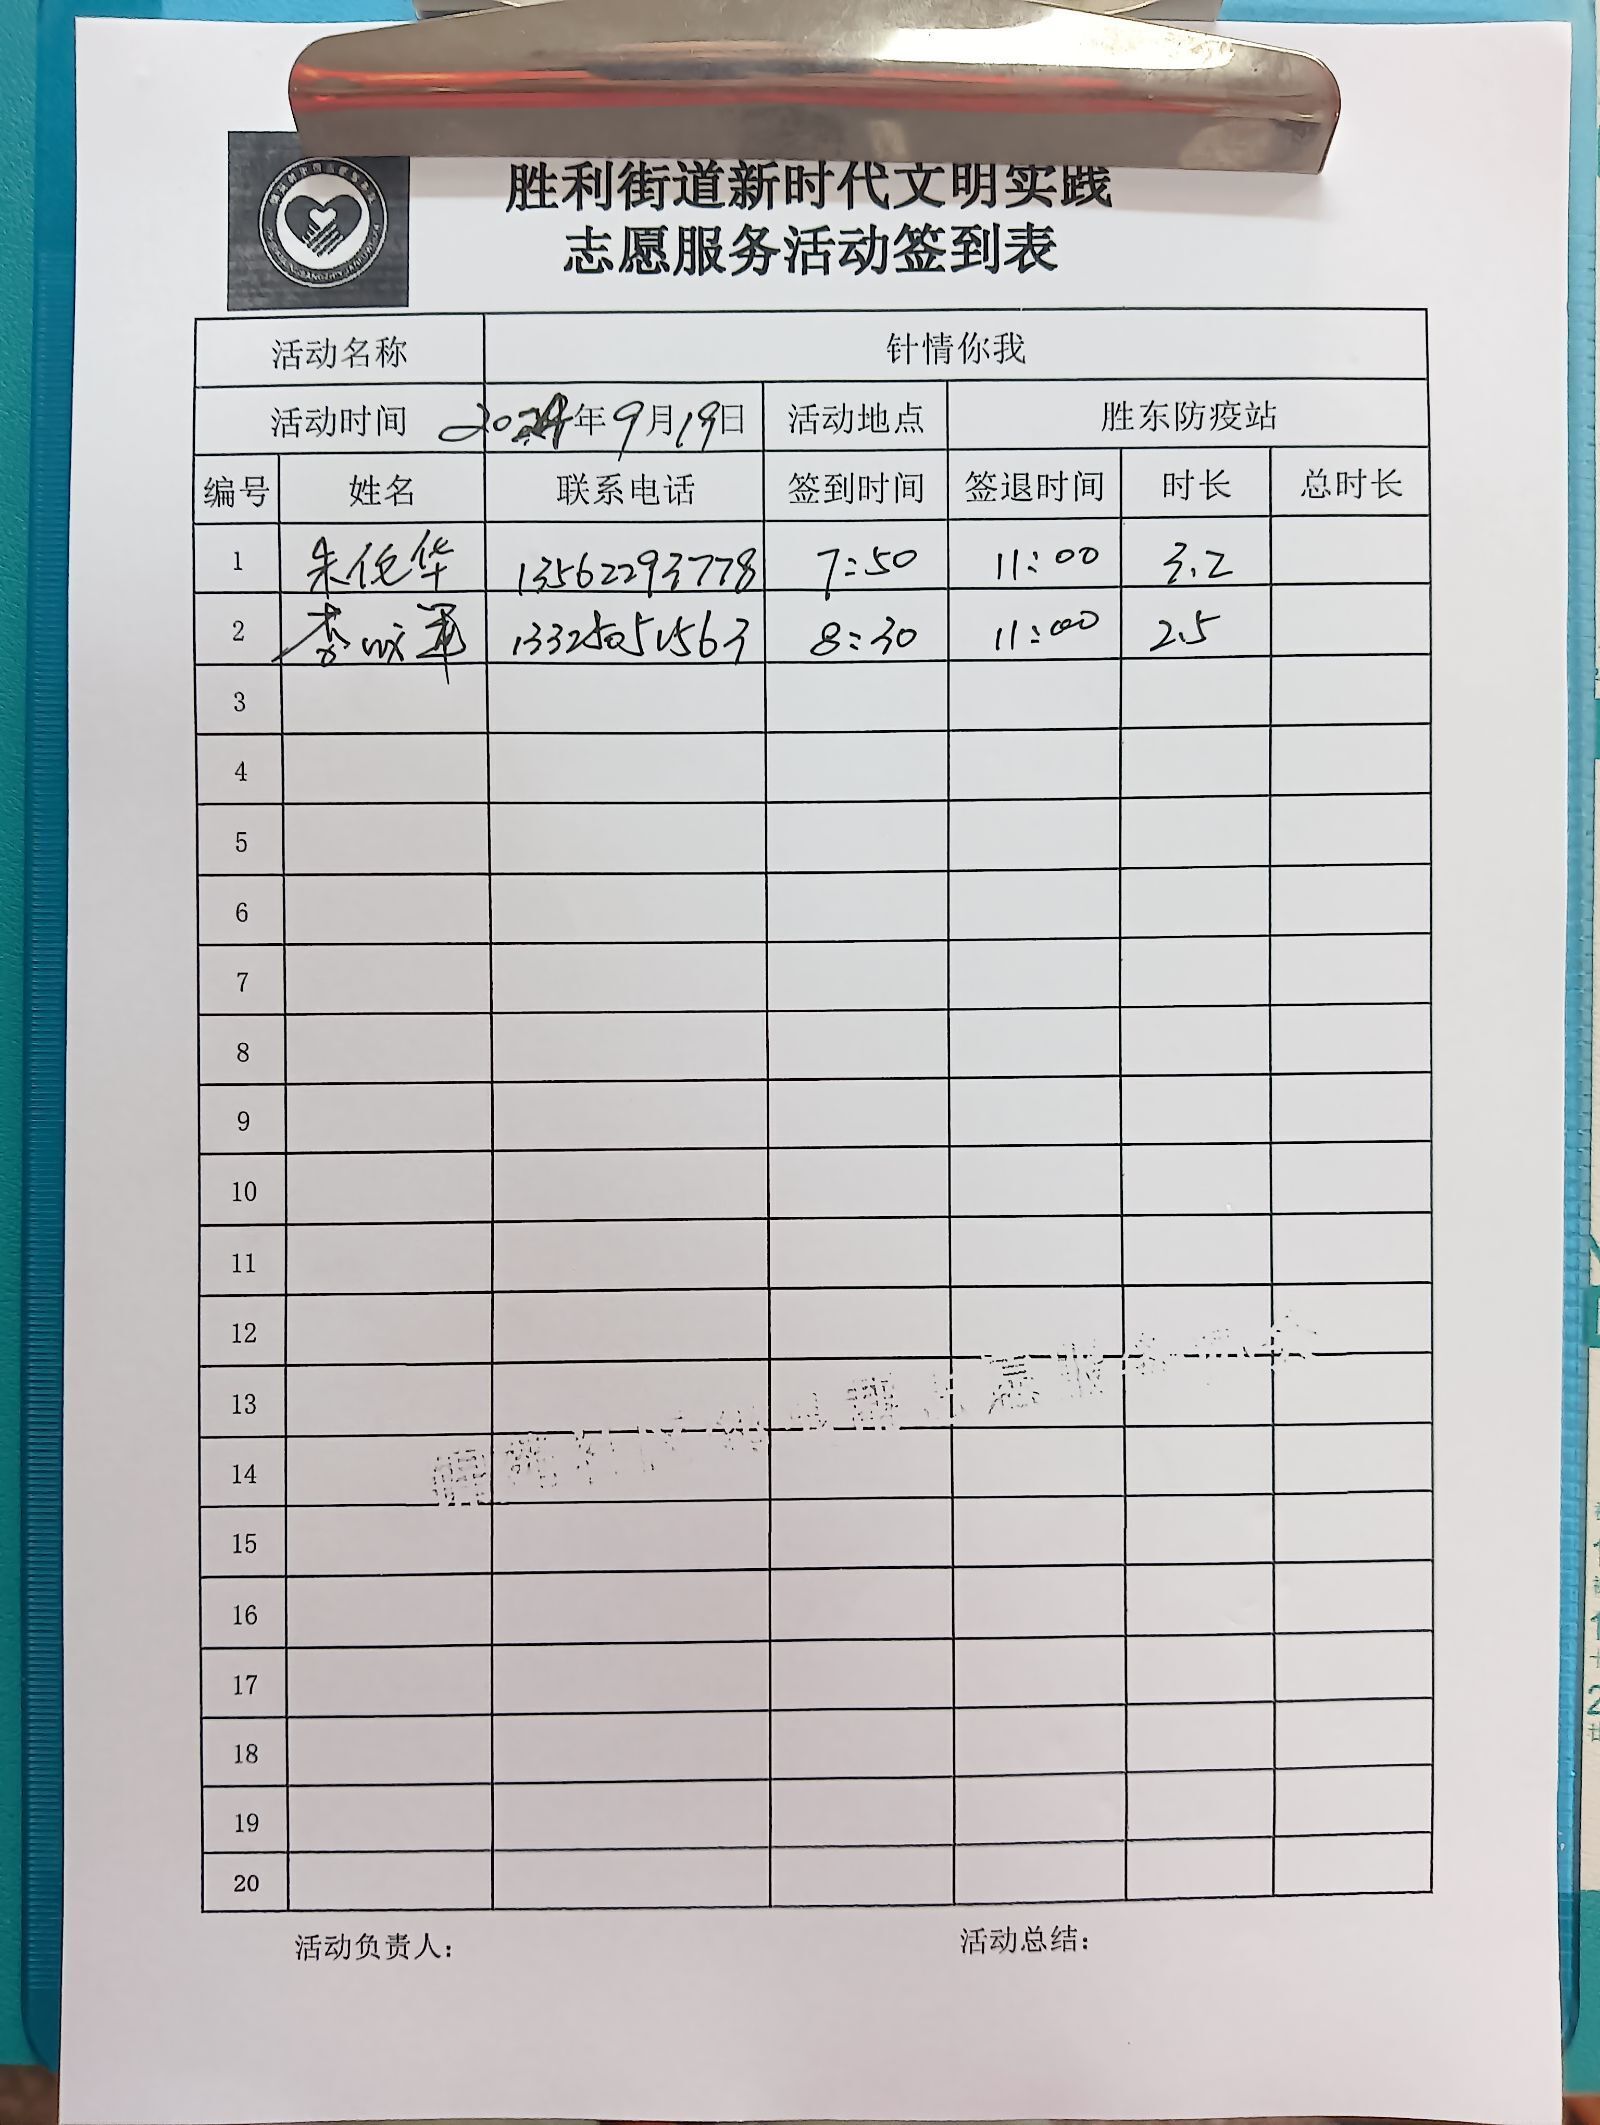 胜利街道新时代文明实践
志愿服务活动签到表
活动名称 针情你我
活动时间 2024年9月19日 活动地点 胜东防疫站
编号 姓名 联系电话 签到时间 签退时间 时长 总时长
1 朱俊华 13562293778 7:50 11:00 3.2
2 李 军 13325051563 8:30 11:00 2.5
3
4
5
6
7
8
9
10
11
12
13
14
15
16
17
18
19
20
活动负责人： 活动总结：